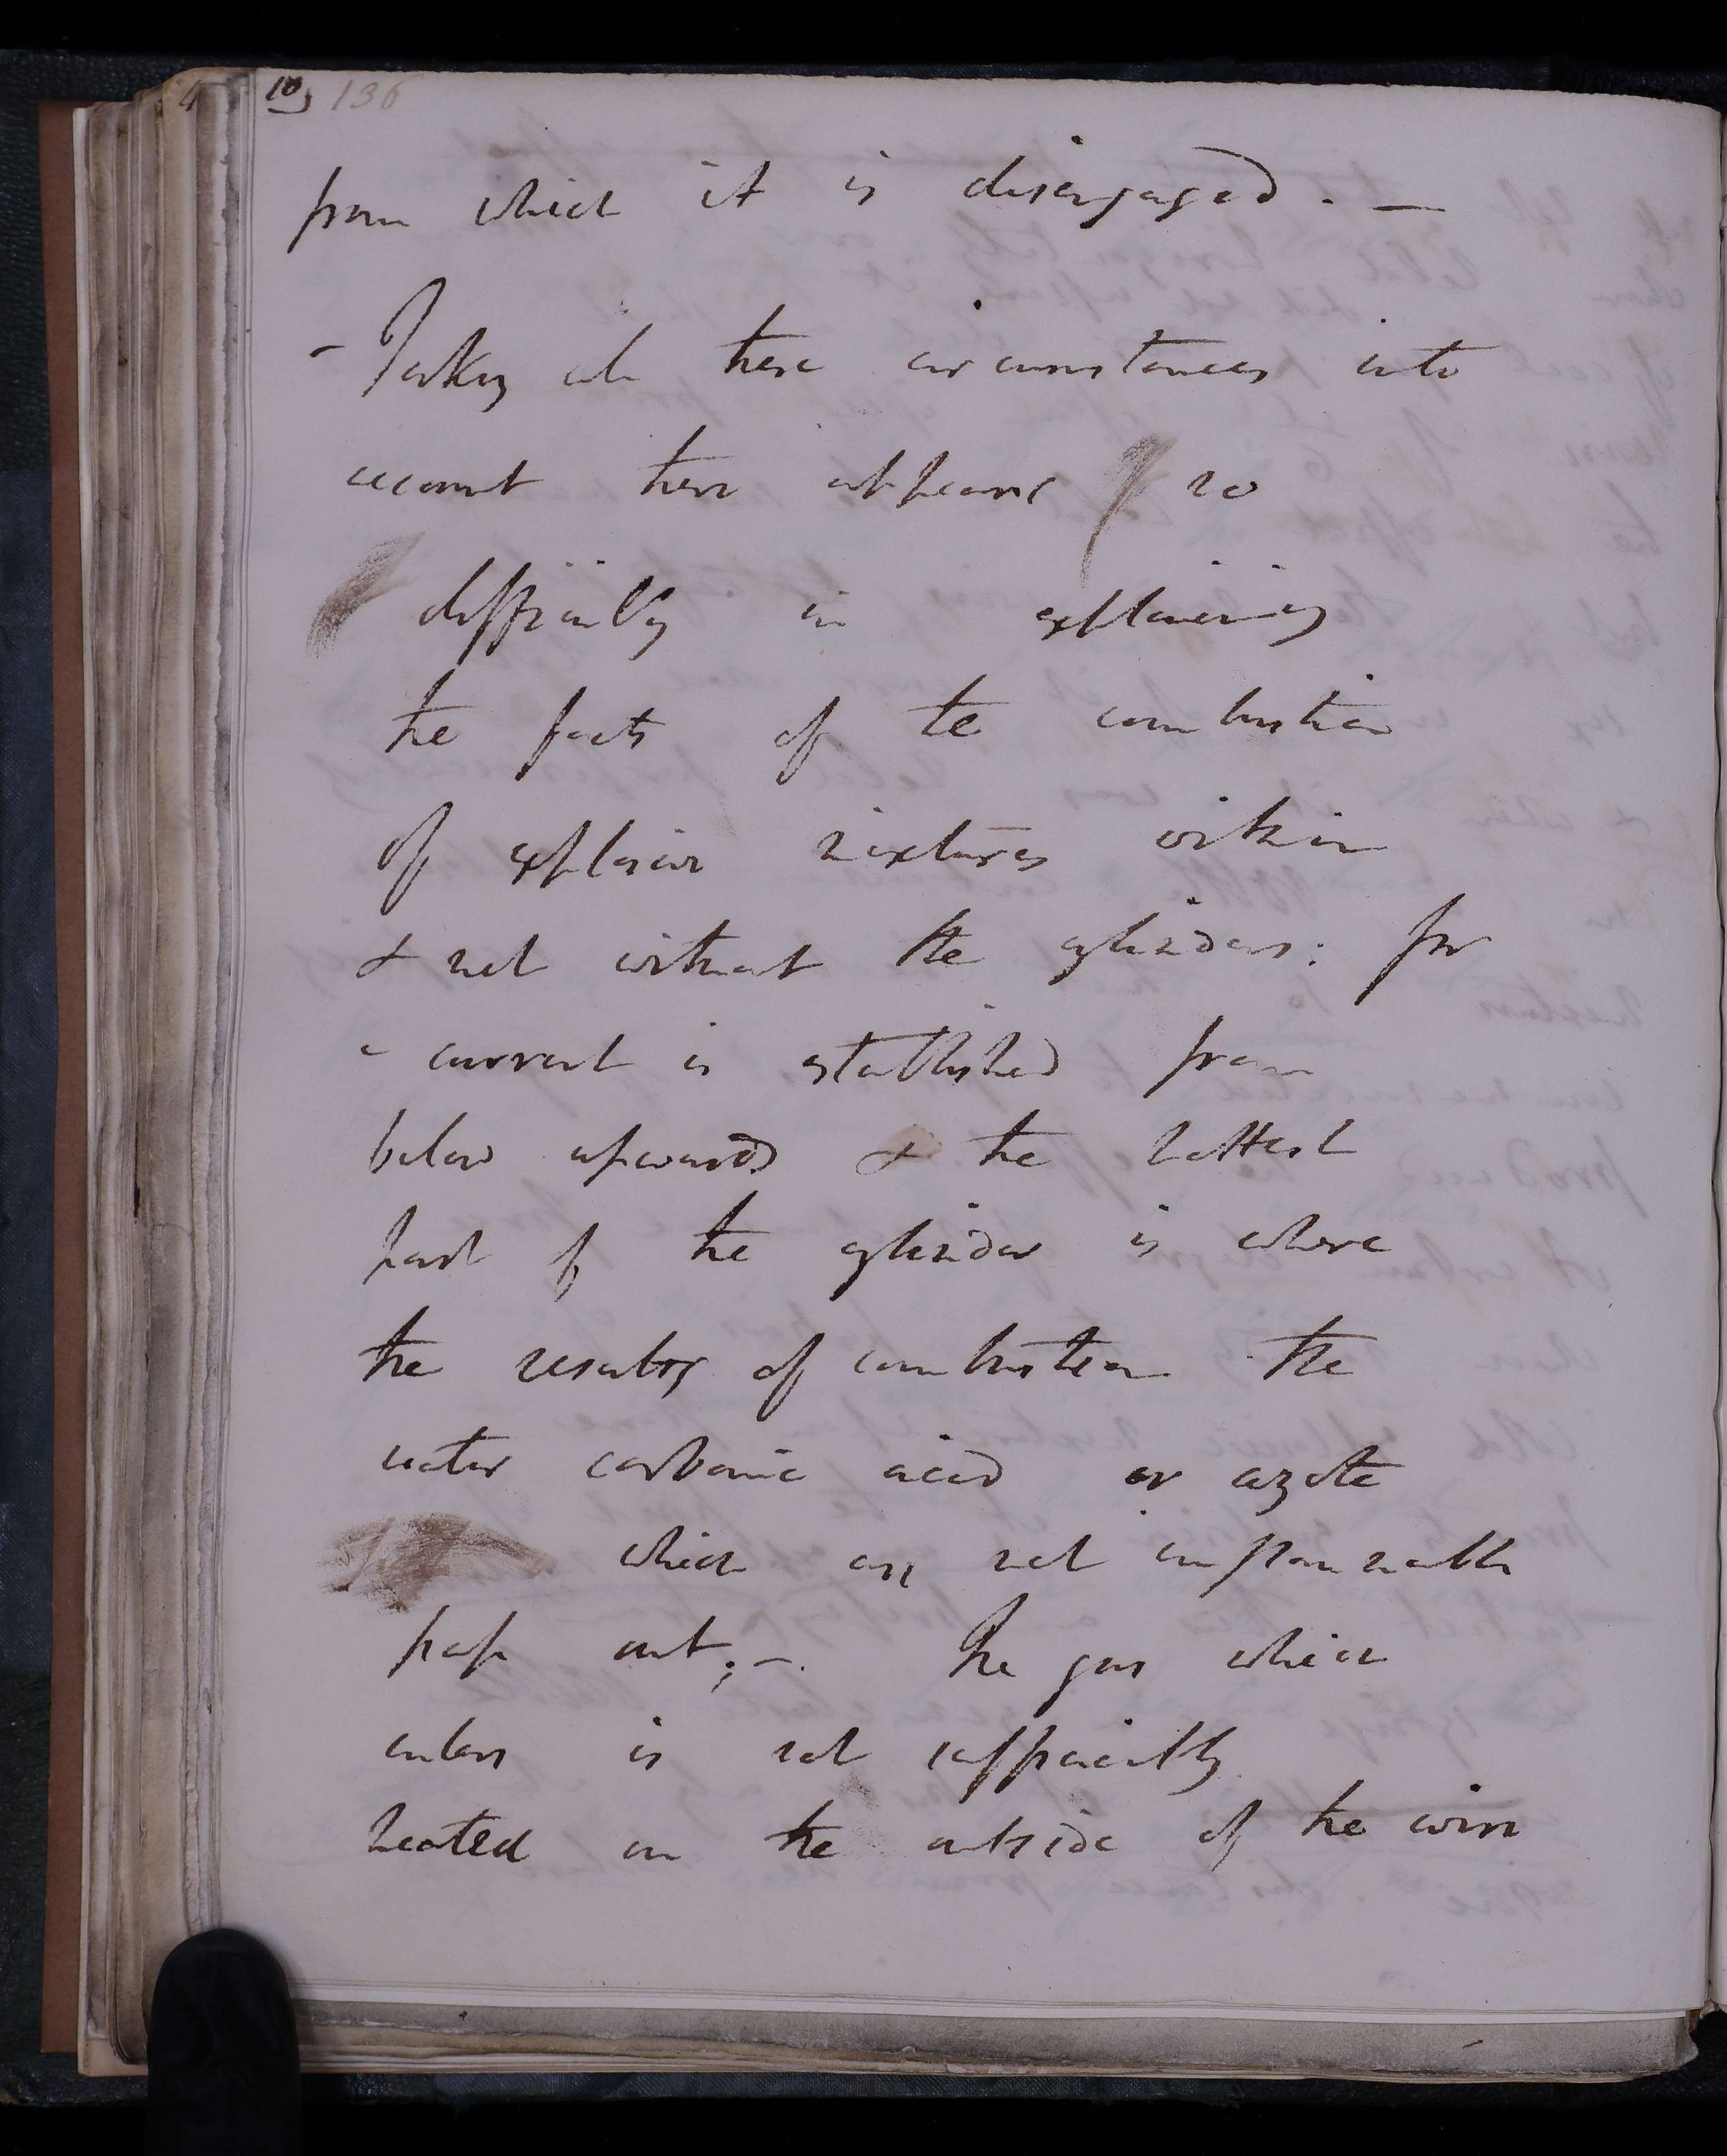 10, 136
from which it is disengaged. —
- Taking all these circumstances into
account there appears no
difficulty in explaining
the facts of the combustion
of explosive mixtures within
& not without the cylinders: for
a current is established from
below upwards & the hottest
part of the cylinder is where
the results of combustion the
water carbonic acid or azote
which are not inflammable
pass out; —. The gas which
enters is not sufficiently
heated on the outside of the wire